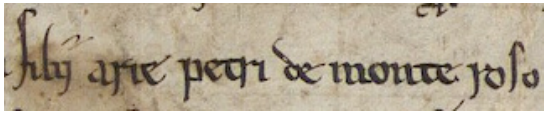 filij arie petri de monte roso